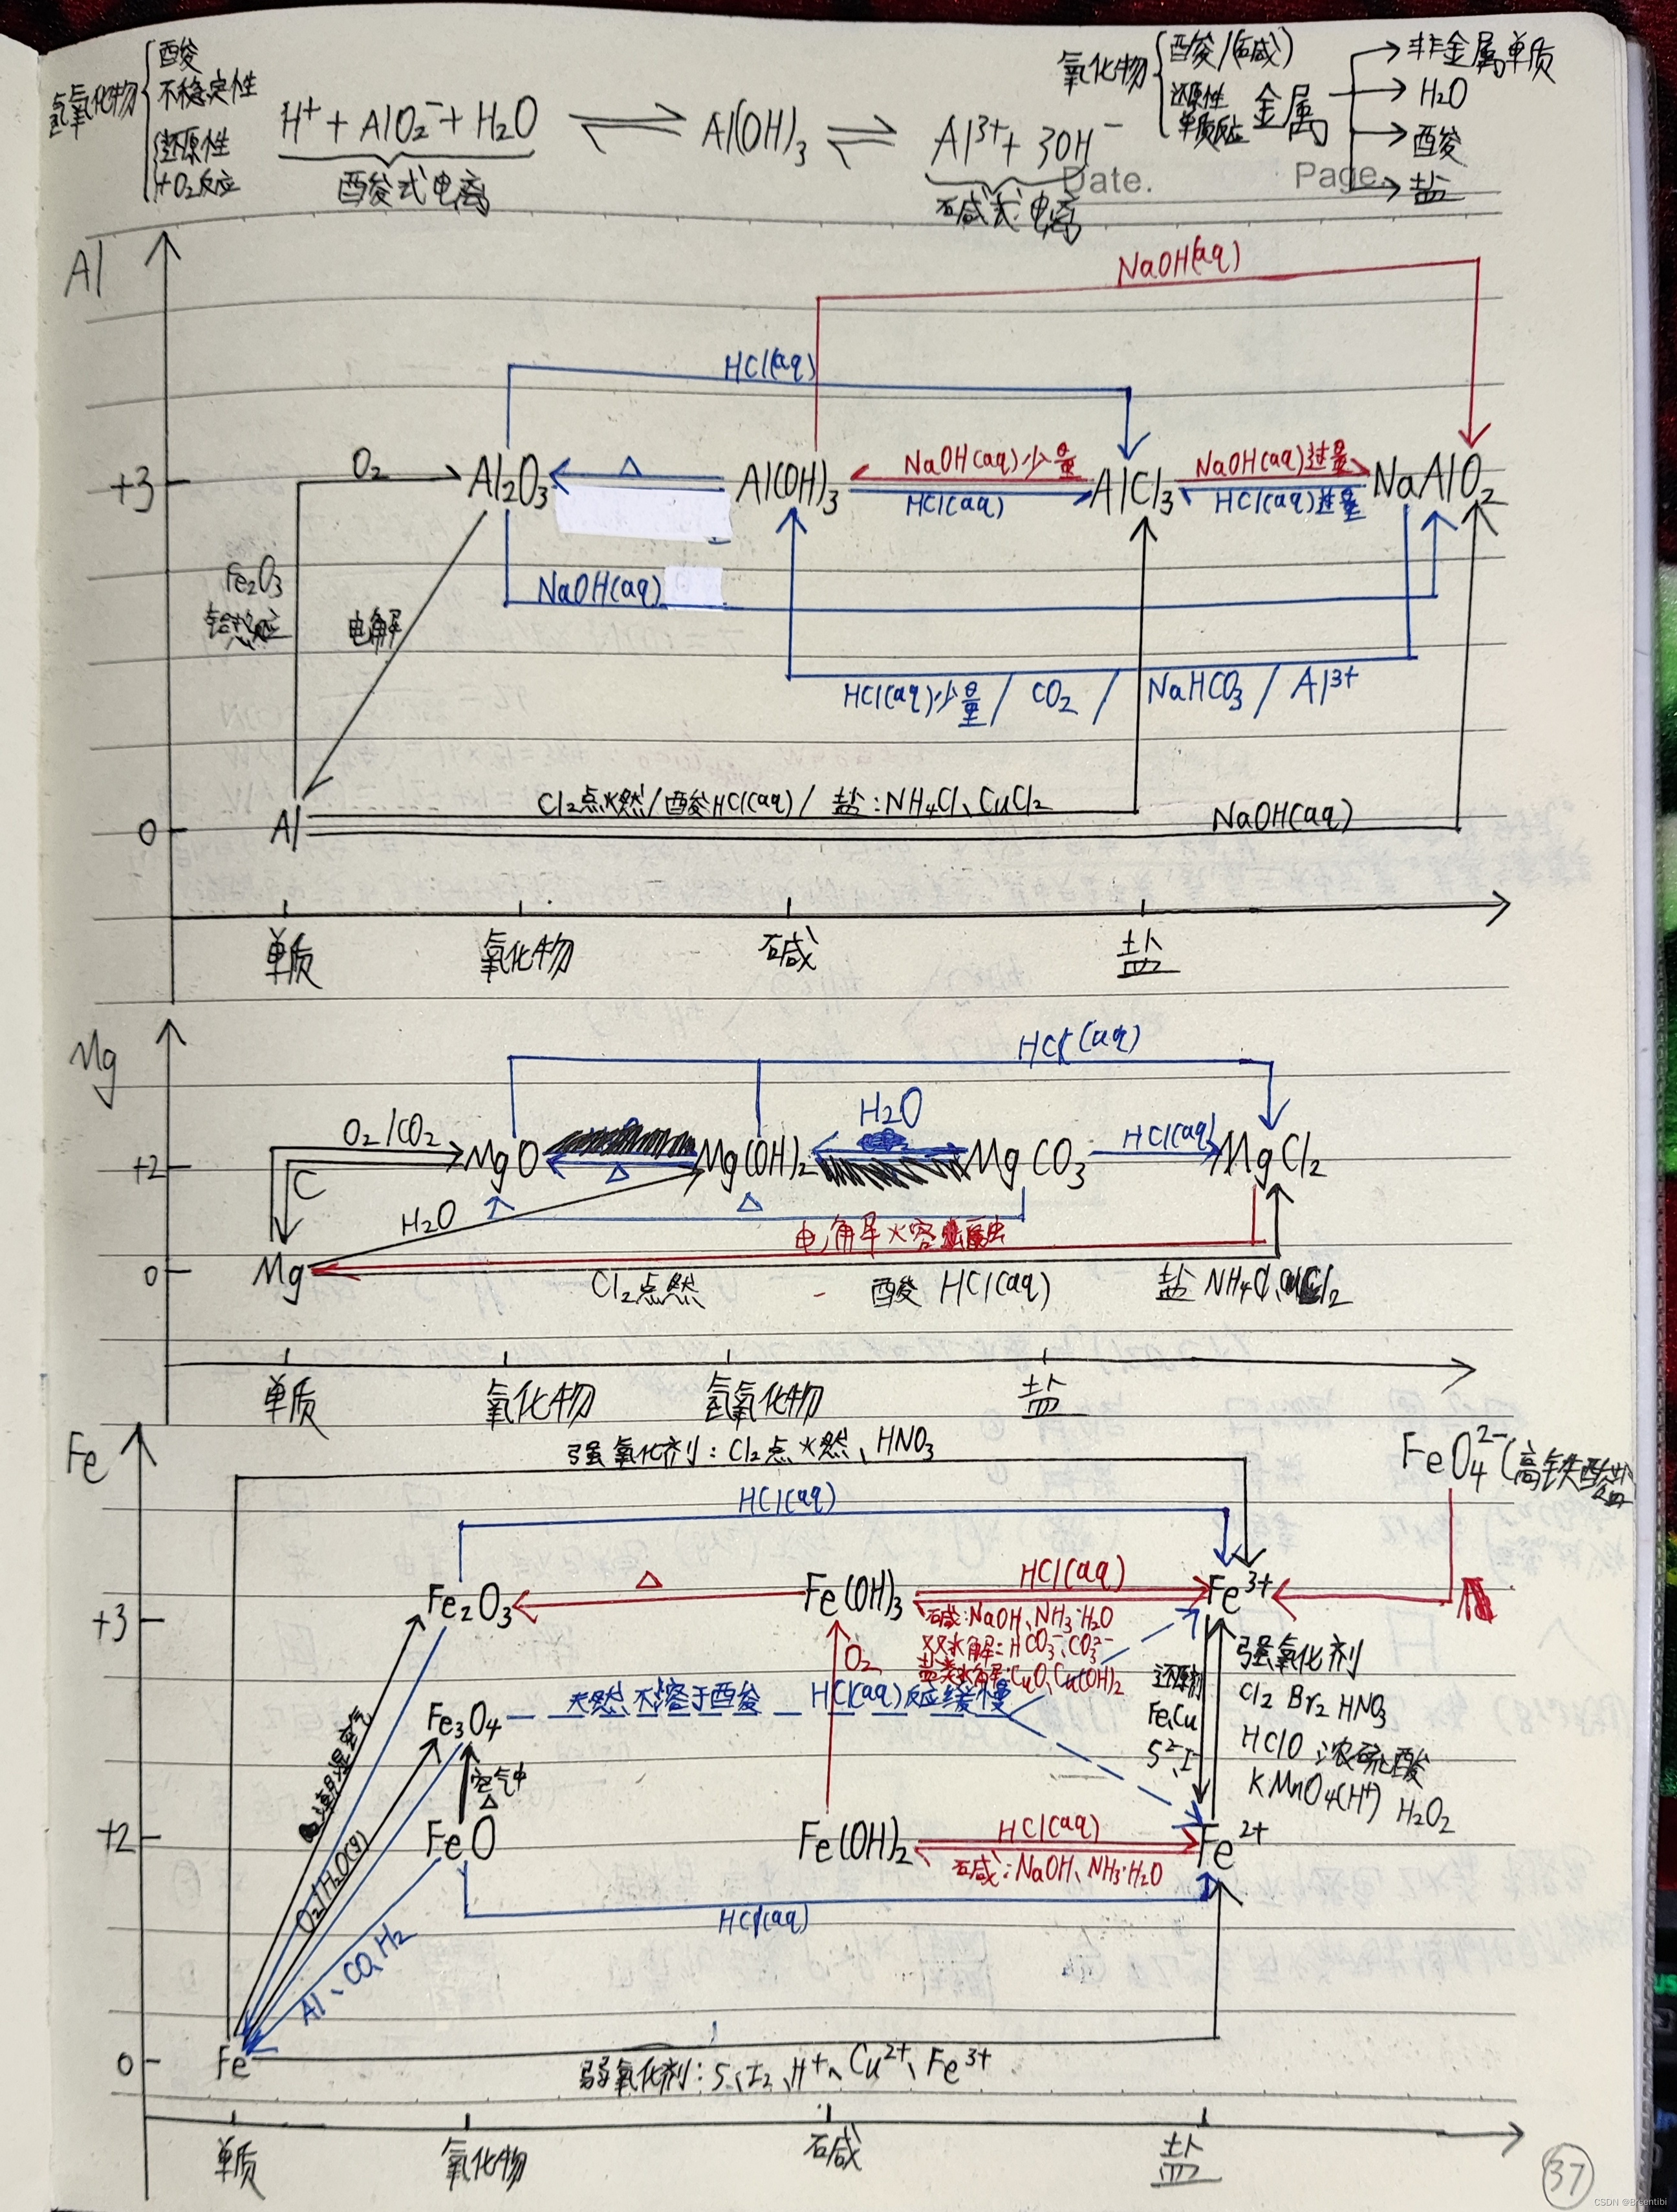 氢氧化物
酸
不稳定性
还原性
+O₂反应
H⁺ + AlO₂⁻ + H₂O ⇌ Al(OH)₃ ⇌ Al³⁺ + 3OH⁻
酸式电离
碱式电离
氧化物
酸/(碱)
还原性
单质反应
金属
非金属单质
H₂O
酸
盐
Date.
Page.
Al
NaOH(aq)
HCl(aq)
O₂
+3
Al₂O₃
△
Al(OH)₃
NaOH(aq)少量
HCl(aq)
AlCl₃
NaOH(aq)过量
HCl(aq)过量
NaAlO₂
Fe₂O₃
电解
NaOH(aq)
HCl(aq)少量 / CO₂ / NaHCO₃ / Al³⁺
Cl₂点燃/酸HCl(aq)/ 盐:NH₄Cl、CuCl₂
NaOH(aq)
0
Al
单质
氧化物
碱
盐
Mg
HCl(aq)
O₂/CO₂
H₂O
+2
MgO
△
Mg(OH)₂
MgCO₃
HCl(aq)
MgCl₂
C
H₂O
△
电解熔融
0
Mg
Cl₂点燃
酸 HCl(aq)
盐 NH₄Cl、CuCl₂
单质
氧化物
氢氧化物
盐
Fe
强氧化剂:Cl₂点燃、HNO₃
FeO₄²⁻(高铁酸盐
HCl(aq)
+3
Fe₂O₃
△
Fe(OH)₃
HCl(aq)
Fe³⁺
碱:NaOH、NH₃·H₂O
双水解:HCO₃⁻、CO₃²⁻
盐类水解:CuO、Cu(OH)₂
O₂
还原剂
Fe、Cu
S²⁻、I⁻
强氧化剂
Cl₂ Br₂ HNO₃
HClO 浓硫酸
KMnO₄(H⁺) H₂O₂
Fe₃O₄
天然不溶于酸
HCl(aq)反应缓慢
潮湿空气
空气中
△
O₂/H₂O(g)
+2
FeO
Fe(OH)₂
HCl(aq)
碱:NaOH、NH₃·H₂O
Fe²⁺
HCl(aq)
Al、CO、H₂
0
Fe
弱氧化剂:S、I₂、H⁺、Cu²⁺、Fe³⁺
单质
氧化物
碱
盐
37
CSDN @Breentibi